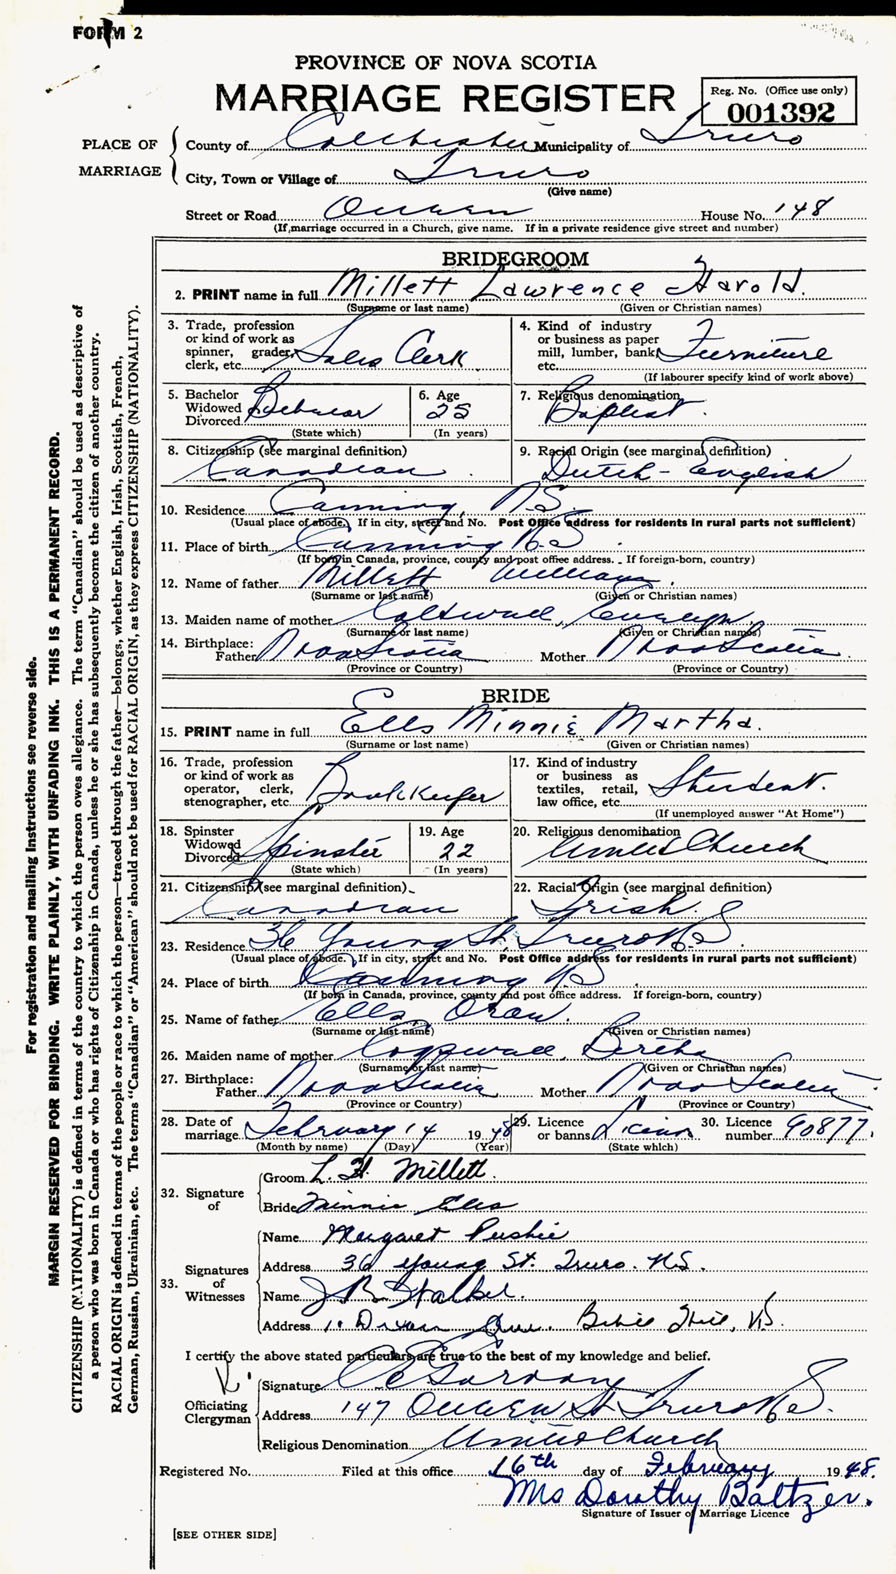 FORM 2
PROVINCE OF NOVA SCOTIA
MARRIAGE REGISTER
Reg. No. (Office use only)
001392
PLACE OF MARRIAGE
County of Colchester Municipality of Truro
City, Town or Village of Truro
(Give name)
Street or Road Queen House No. 148
(If marriage occurred in a Church, give name. If in a private residence give street and number)
BRIDEGROOM
2. PRINT name in full Millett Lawrence Harold.
(Surname or last name) (Given or Christian names)
3. Trade, profession or kind of work as spinner, grader, clerk, etc. Sales Clerk
4. Kind of industry or business as paper mill, lumber, bank, etc. Furniture
(If labourer specify kind of work above)
5. Bachelor Widowed Divorced Bachelor
(State which)
6. Age 25
(In years)
7. Religious denomination Baptist.
8. Citizenship (see marginal definition) Canadian.
9. Racial Origin (see marginal definition) Dutch - English
10. Residence Canning, N.S.
(Usual place of abode. If in city, street and No. Post Office address for residents in rural parts not sufficient)
11. Place of birth Canning N.S.
(If born in Canada, province, county and post office address. If foreign-born, country)
12. Name of father Millett William.
(Surname or last name) (Given or Christian names)
13. Maiden name of mother Evelyn
(Surname or last name) (Given or Christian names)
14. Birthplace: Father Nova Scotia Mother Nova Scotia.
(Province or Country) (Province or Country)
BRIDE
15. PRINT name in full Ells Minnie Martha.
(Surname or last name) (Given or Christian names)
16. Trade, profession or kind of work as operator, clerk, stenographer, etc. Bookkeeper
17. Kind of industry or business as textiles, retail, law office, etc. Student.
(If unemployed answer "At Home")
18. Spinster Widowed Divorced Spinster
(State which)
19. Age 22
(In years)
20. Religious denomination United Church
21. Citizenship (see marginal definition) Canadian
22. Racial Origin (see marginal definition) Irish.
23. Residence 36 Young St. Truro N.S.
(Usual place of abode. If in city, street and No. Post Office address for residents in rural parts not sufficient)
24. Place of birth Canning N.S.
(If born in Canada, province, county and post office address. If foreign-born, country)
25. Name of father Ells, Oran.
(Surname or last name) (Given or Christian names)
26. Maiden name of mother Bertha
(Surname or last name) (Given or Christian names)
27. Birthplace: Father Nova Scotia Mother Nova Scotia
(Province or Country) (Province or Country)
28. Date of marriage February 14 1948
(Month by name) (Day) (Year)
29. Licence or banns Licence
(State which)
30. Licence number 90877.
32. Signature of
Groom L. H. Millett.
Bride Minnie Ells
33. Signatures of Witnesses
Name Margaret Pushie
Address 36 Young St. Truro. N.S.
Name J R Stalker.
Address Bible Hill, N.S.
I certify the above stated particulars are true to the best of my knowledge and belief.
Officiating Clergyman
Signature
Address 147 Queen St Truro N.S.
Religious Denomination United Church
Registered No. Filed at this office 16th day of February 1948.
Mrs Dorothy Baltzer.
Signature of Issuer of Marriage Licence
[SEE OTHER SIDE]
For registration and mailing instructions see reverse side.
MARGIN RESERVED FOR BINDING. WRITE PLAINLY, WITH UNFADING INK. THIS IS A PERMANENT RECORD.
CITIZENSHIP (NATIONALITY) is defined in terms of the country to which the person owes allegiance. The term "Canadian" should be used as descriptive of
a person who was born in Canada or who has rights of Citizenship in Canada, unless he or she has subsequently become the citizen of another country.
RACIAL ORIGIN is defined in terms of the people or race to which the person—traced through the father—belongs, whether English, Irish, Scottish, French,
German, Russian, Ukrainian, etc. The terms "Canadian" or "American" should not be used for RACIAL ORIGIN, as they express CITIZENSHIP (NATIONALITY).